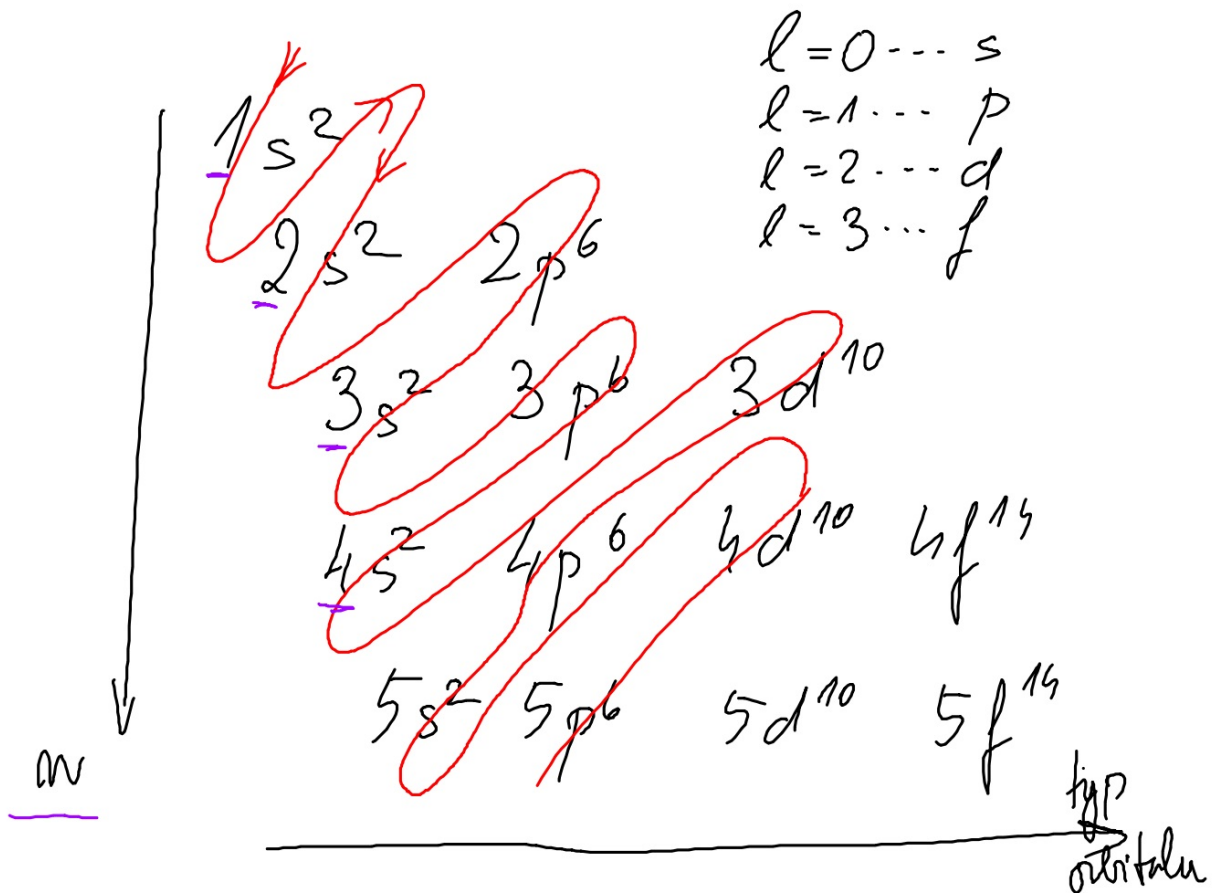 l = 0 --- s
l = 1 --- p
l = 2 --- d
l = 3 --- f
1s²
2s² 2p⁶
3s² 3p⁶ 3d¹⁰
4s² 4p⁶ 4d¹⁰ 4f¹⁴
5s² 5p⁶ 5d¹⁰ 5f¹⁴
n
typ
orbitalu